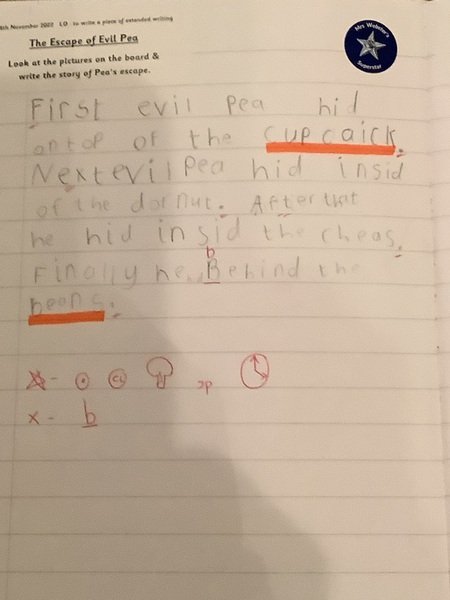 8th November 2022 LO: to write a piece of extended writing
The Escape of Evil Pea
Look at the pictures on the board &
write the story of Pea's escape.
Mrs Webster's
Superstar
First evil Pea hid
ontop of the cupcaick.
Next evil Pea hid insid
of the dornut. After that
he hid in sid the cheas.
b
Finally he Behind the
beens.
sp
x - b